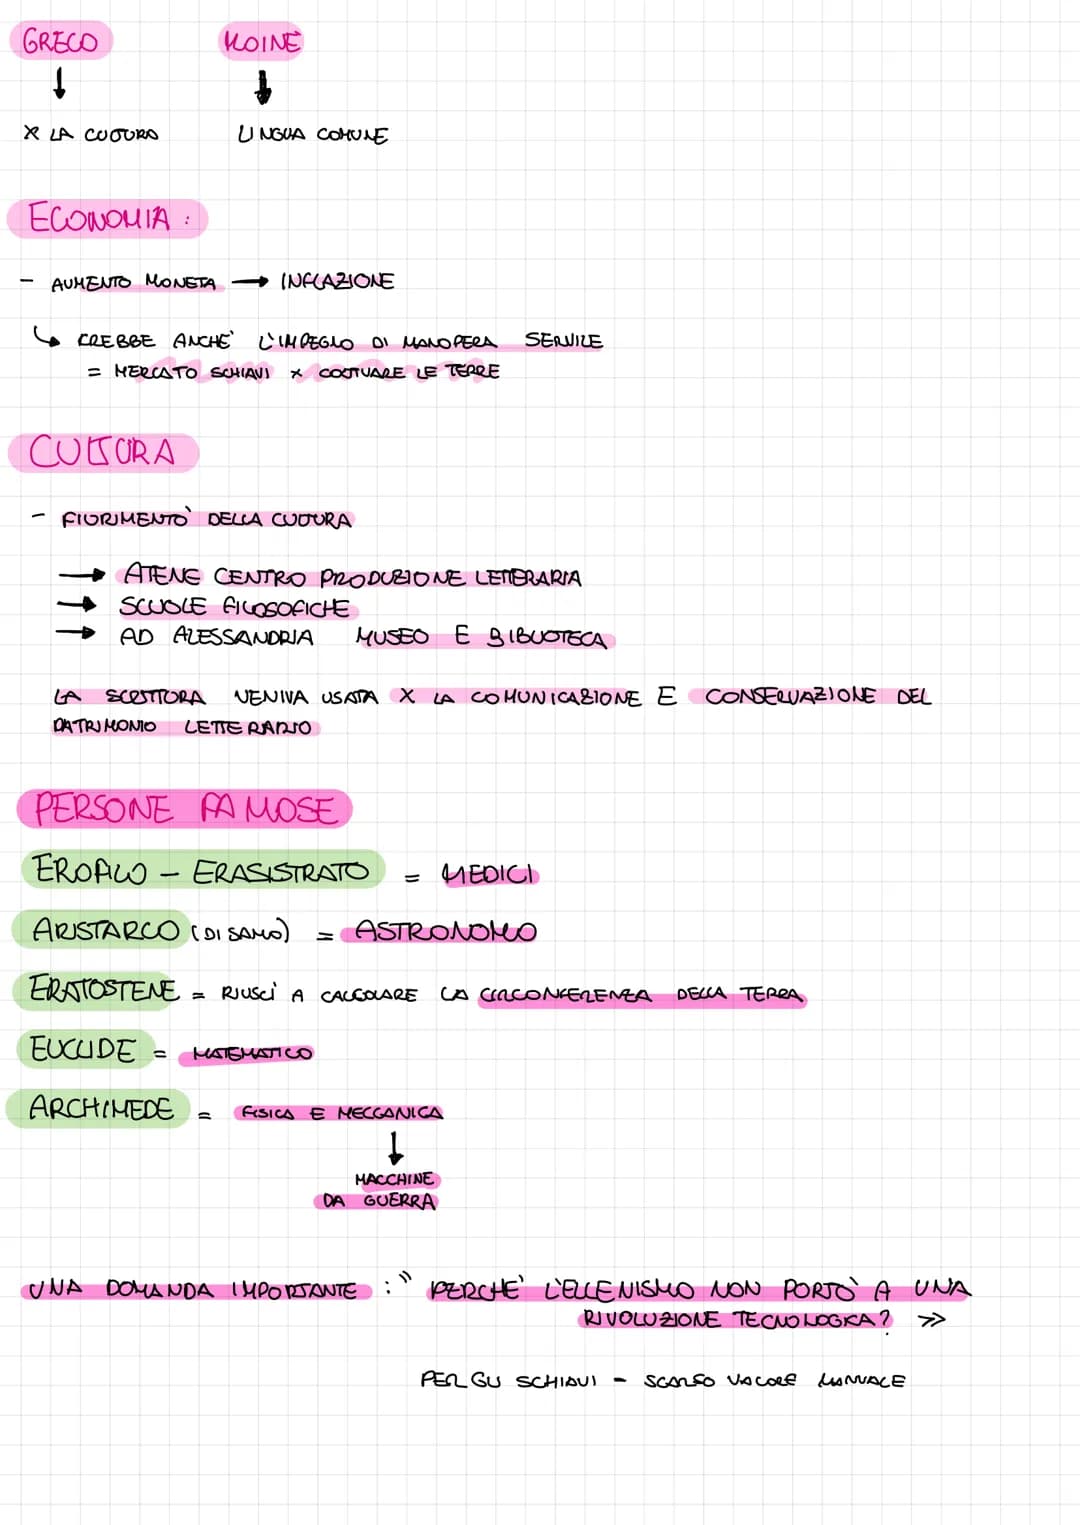 GRECO KOINÈ
X LA CULTURA LINGUA COMUNE
ECONOMIA :
- AUMENTO MONETA → INFLAZIONE
↳ CREBBE ANCHE' L'IMPEGLO DI MANOPERA SERVILE
= MERCATO SCHIAVI X COLTIVARE LE TERRE
CULTURA
- FIORIMENTO' DELLA CULTURA
→ ATENE CENTRO PRODUZIONE LETTERARIA
→ SCUOLE FILOSOFICHE
→ AD ALESSANDRIA MUSEO E BIBLIOTECA
LA SCRITTURA VENIVA USATA X LA COMUNICAZIONE E CONSERVAZIONE DEL
PATRIMONIO LETTERARIO
PERSONE FAMOSE
EROFILO - ERASISTRATO = MEDICI
ARISTARCO (DI SAMO) = ASTRONOMO
ERATOSTENE = RIUSCÌ A CALCOLARE LA CIRCONFERENZA DELLA TERRA
EUCLIDE = MATEMATICO
ARCHIMEDE = FISICA E MECCANICA
MACCHINE
DA GUERRA
UNA DOMANDA IMPORTANTE : " PERCHE' L'ELLENISMO NON PORTÒ A UNA
RIVOLUZIONE TECNOLOGICA? >>
PER GLI SCHIAVI - SCARSO VALORE MANUALE